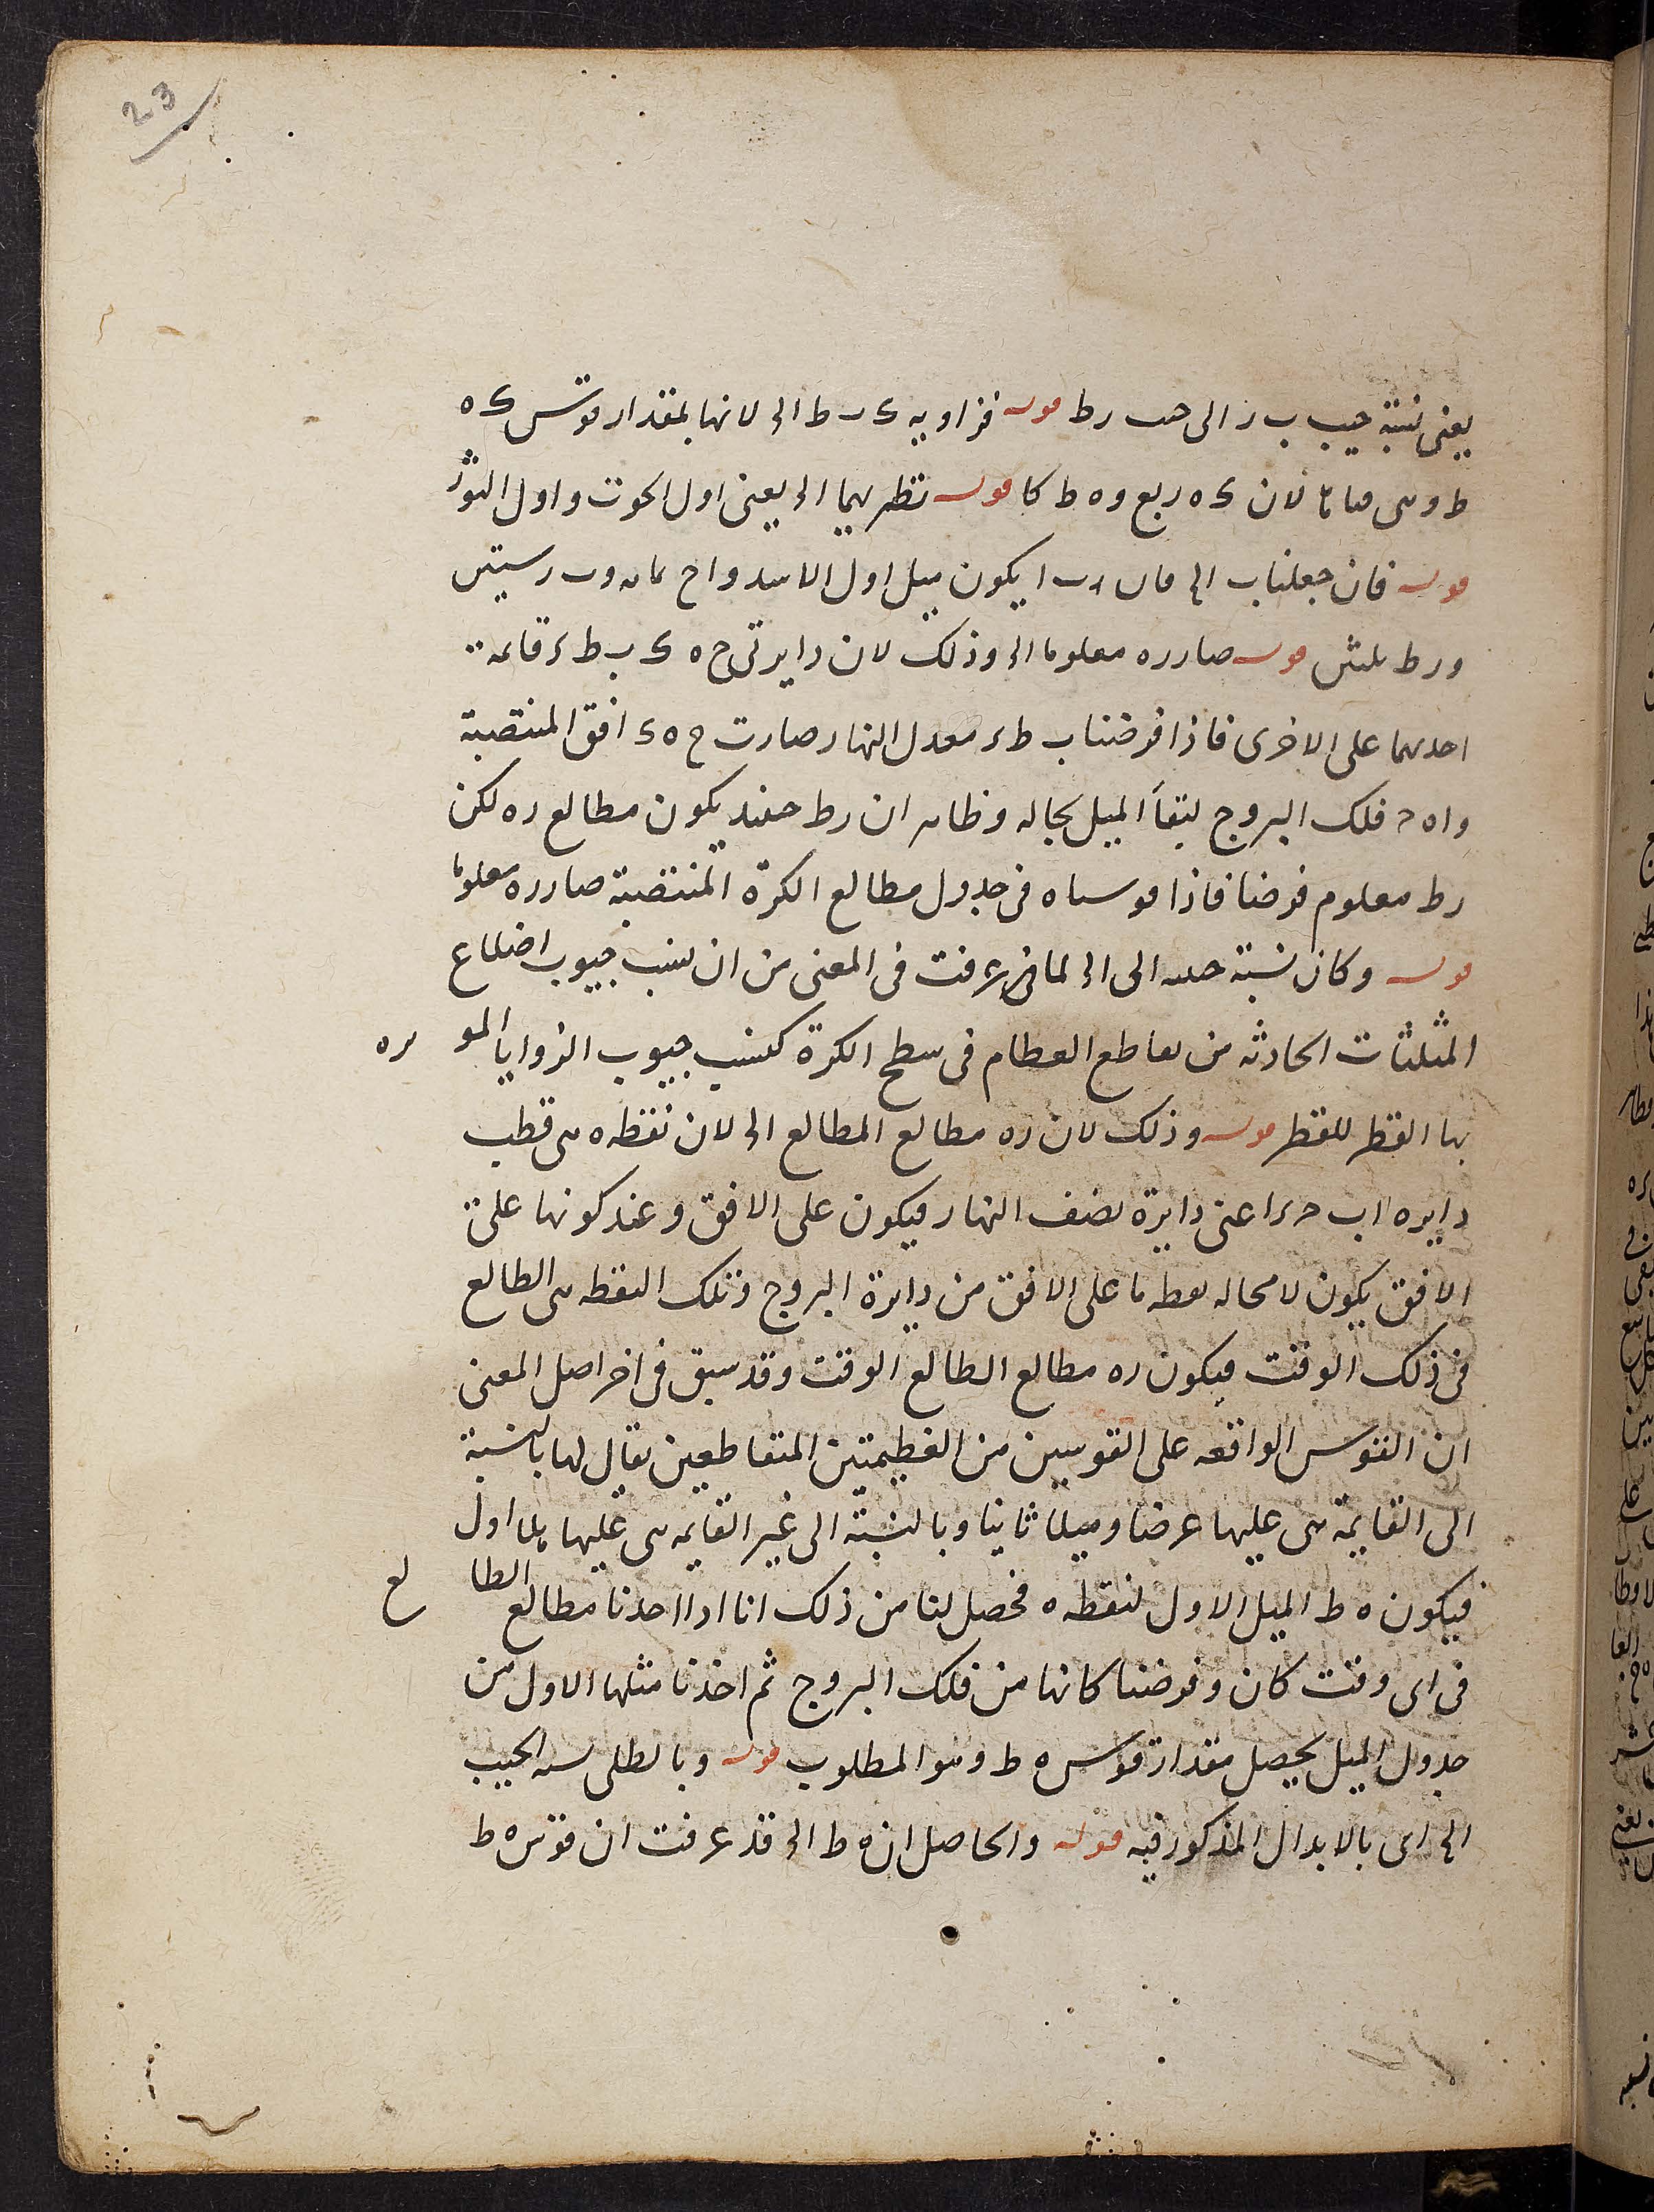 23
يعنى نسبة جيب ب ر الى حب رط قوله فزاويه ى ب ط الخ لانها بمقدار قوس ى ه
ط وهى لان ى ه ربع و ه ط كا قوله نظيريهما الخ يعنى اول الحوت واول الثور
قوله فان جعلنا ب الخ فان ا يكون ميل اول الاسد و ا ح
و ر ط قوله صار ره معلوما الخ وذلك لان دايرتى ح ه ى ب ط ى قايمة
احديهما على الاخرى فاذا فرضنا ب ط ى معدل النهار صارت ح ه ى افق المنتصبة
و ا ه ح فلك البروج لبقآ الميل بحاله وظاهر ان رط حينئذ يكون مطالع ره لكن
رط معلوم فرضا فاذا قوسناه فى جدول مطالع الكرة المنتصبة صار ره معلوما
قوله وكان نسبة الى الخ لما عرفت فى المعنى من ان نسب جيوب اضلاع
المثلثات الحادثه من تقاطع العظام فى سطح الكرة كنسب جيوب الزوايا المو تره
بها القطر للقطر قوله وذلك لان ره مطالع المطالع الخ لان نقطه ه هى قطب
دايره اب ح ر اعنى دايرة نصف النهار فيكون على الافق وعند كونها على
الافق يكون لا محاله نقطه ما على الافق من دايرة البروج وتلك النقطه هى الطالع
فى ذلك الوقت فيكون ره مطالع الطالع الوقت وقد سبق فى اخر اصل المعنى
ان القوس الواقعه على القوسين من العظيمتين المتقاطعين يقال لها بالنسبة
الى القايمة هى عليها عرضا وميلا ثانيا وبالنسبة الى غير القايمه هى عليها ميلا اول
فيكون ه ط الميل الاول لنقطه ه فحصل لنا من ذلك انا اذا اخذنا مطالع الطا لع
فى اى وقت كان وفرضنا كانها من فلك البروج ثم اخذنا مثلها الاول من
جدول الميل يحصل مقدار قوس ه ط وهو المطلوب قوله الجيب
الخ اى بالابدال المذكور فيه قوله والحاصل ان ه ط الخ قد عرفت ان قوس ه ط